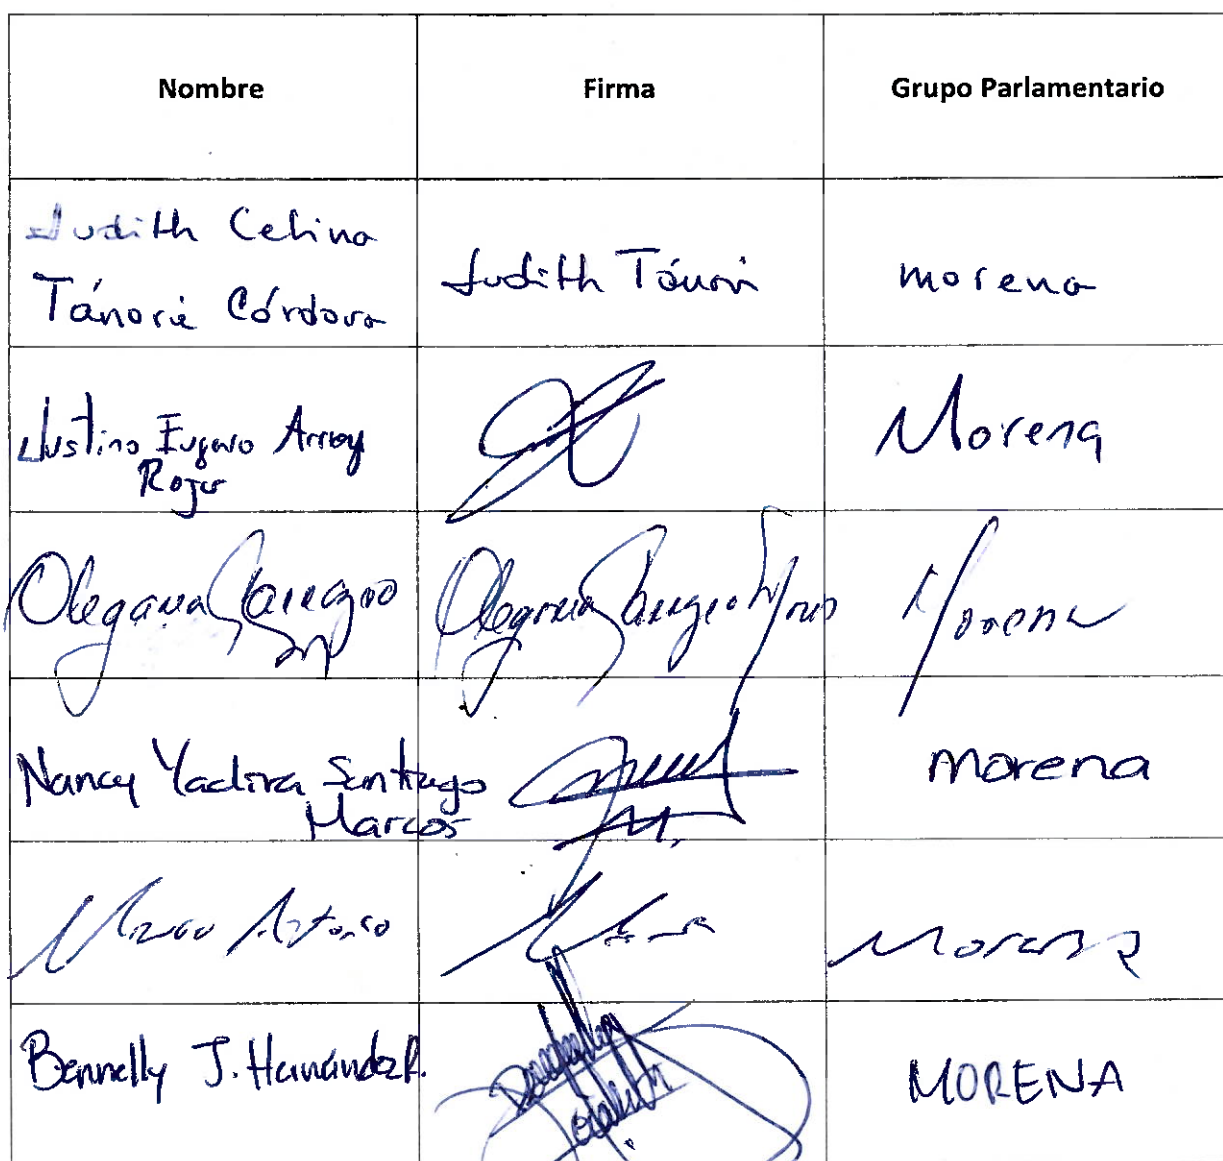 Nombre Firma Grupo Parlamentario
Judith Celina
Tánori Córdova
Judith Tánori
morena
Justino Eugenio Arriaga
Rojas
Morena
Olegaria Carrazco
Olegaria Carrazco Macías
Morena
Nancy Yadira Santiago
Marcos
morena
Marco Antonio
Morena
Bennelly J. Hernández R.
MORENA